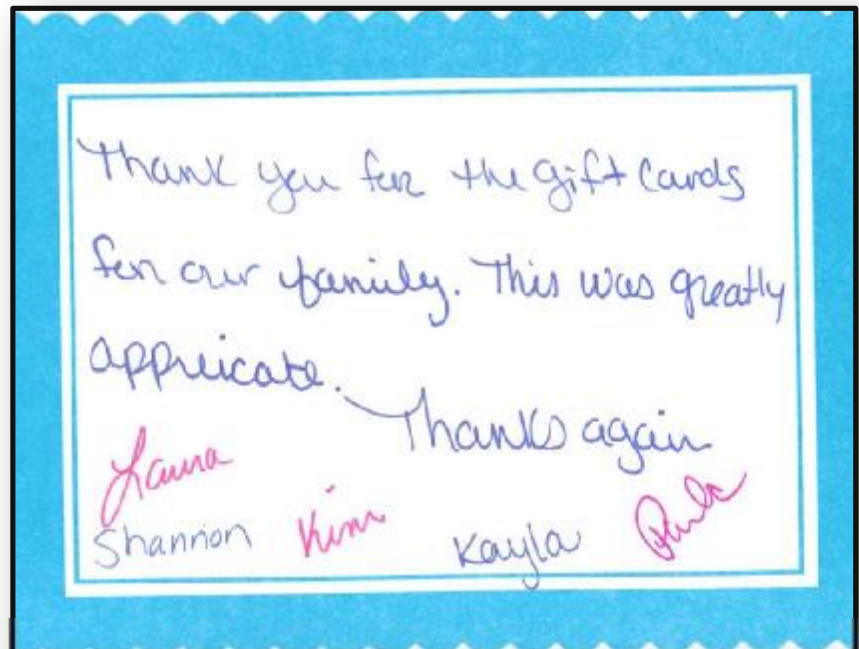 Thank you for the gift cards
for our family. This was greatly
appreicate.
Thanks again
Laura
Shannon Kim Kayla